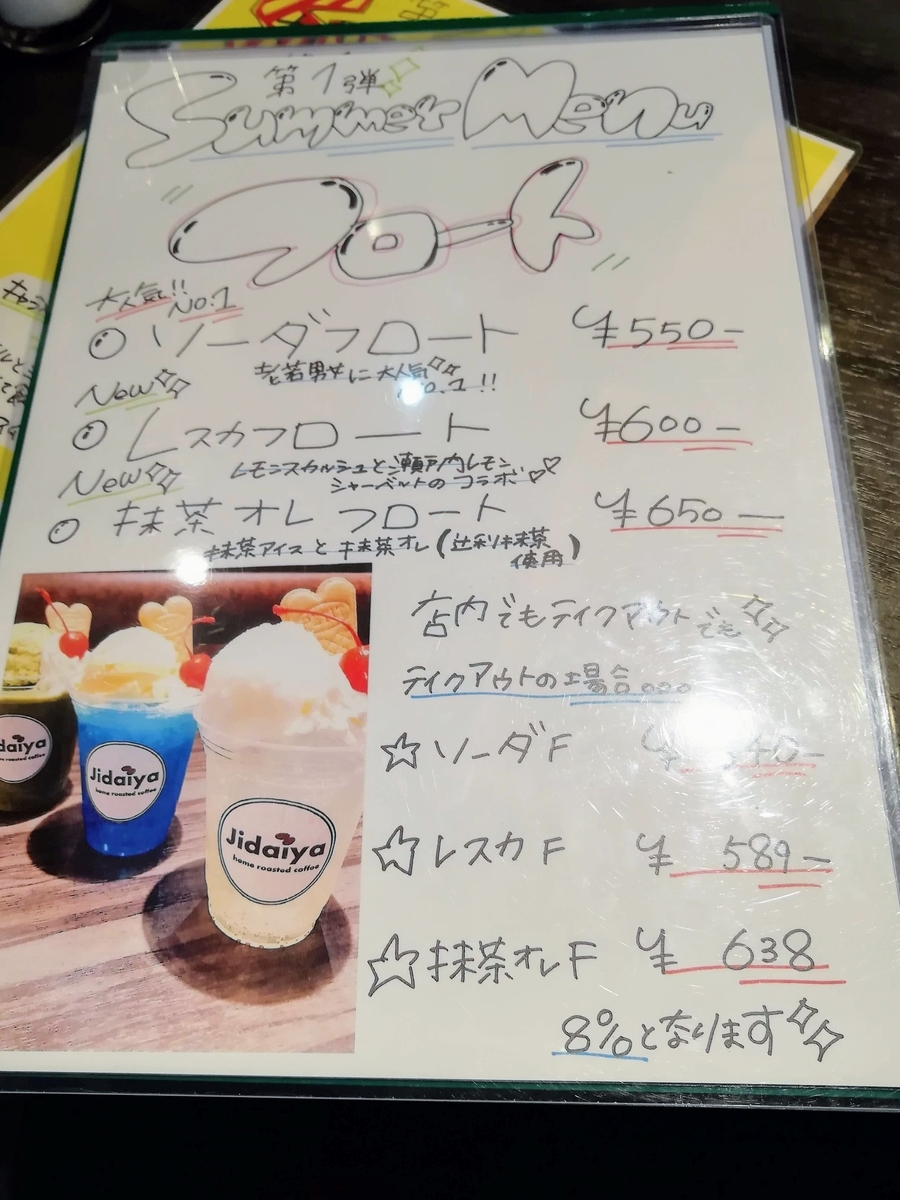 第1弾
Summer Menu
フロート
大人気!! No.1
ソーダフロート ¥550-
老若男女に大人気
No.1!!
New
レスカフロート ¥600-
レモンスカッシュと瀬戸内レモン
シャーベットのコラボ♡♡
New
抹茶オレフロート ¥650-
抹茶アイスと抹茶オレ(辻利抹茶
使用)
店内でもテイクアウトでも
テイクアウトの場合。。。
☆ソーダF ¥540-
☆レスカF ¥589-
☆抹茶オレF ¥638
8%となります
daiya
roasted coffee
Jidaiya
home roasted coffee
Jidaiya
home roasted coffee